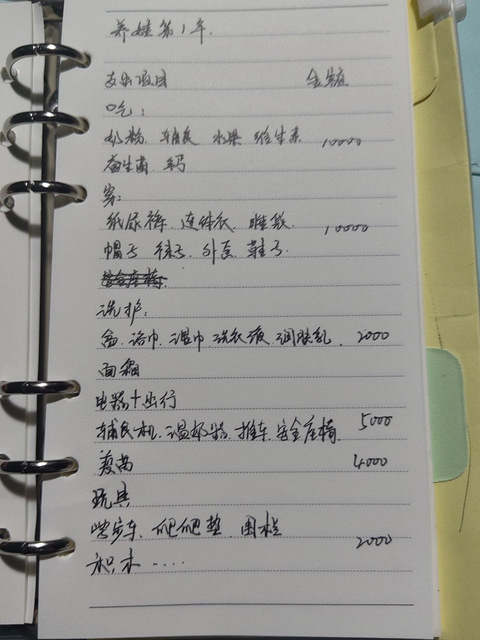 养娃第1年.
支出项目 金额
吃:
奶粉. 辅食 水果 维生素 10000
益生菌 钙
穿:
纸尿裤. 连体衣. 睡袋. 10000
帽子 袜子. 外套. 鞋子.
安全座椅
洗护:
盆. 浴巾. 湿巾. 洗衣液. 润肤乳. 2000
面霜
电器+出行
辅食机. 温奶器. 推车. 安全座椅. 5000
疫苗 4000
玩具
学步车. 爬爬垫. 围栏
积木.... 2000